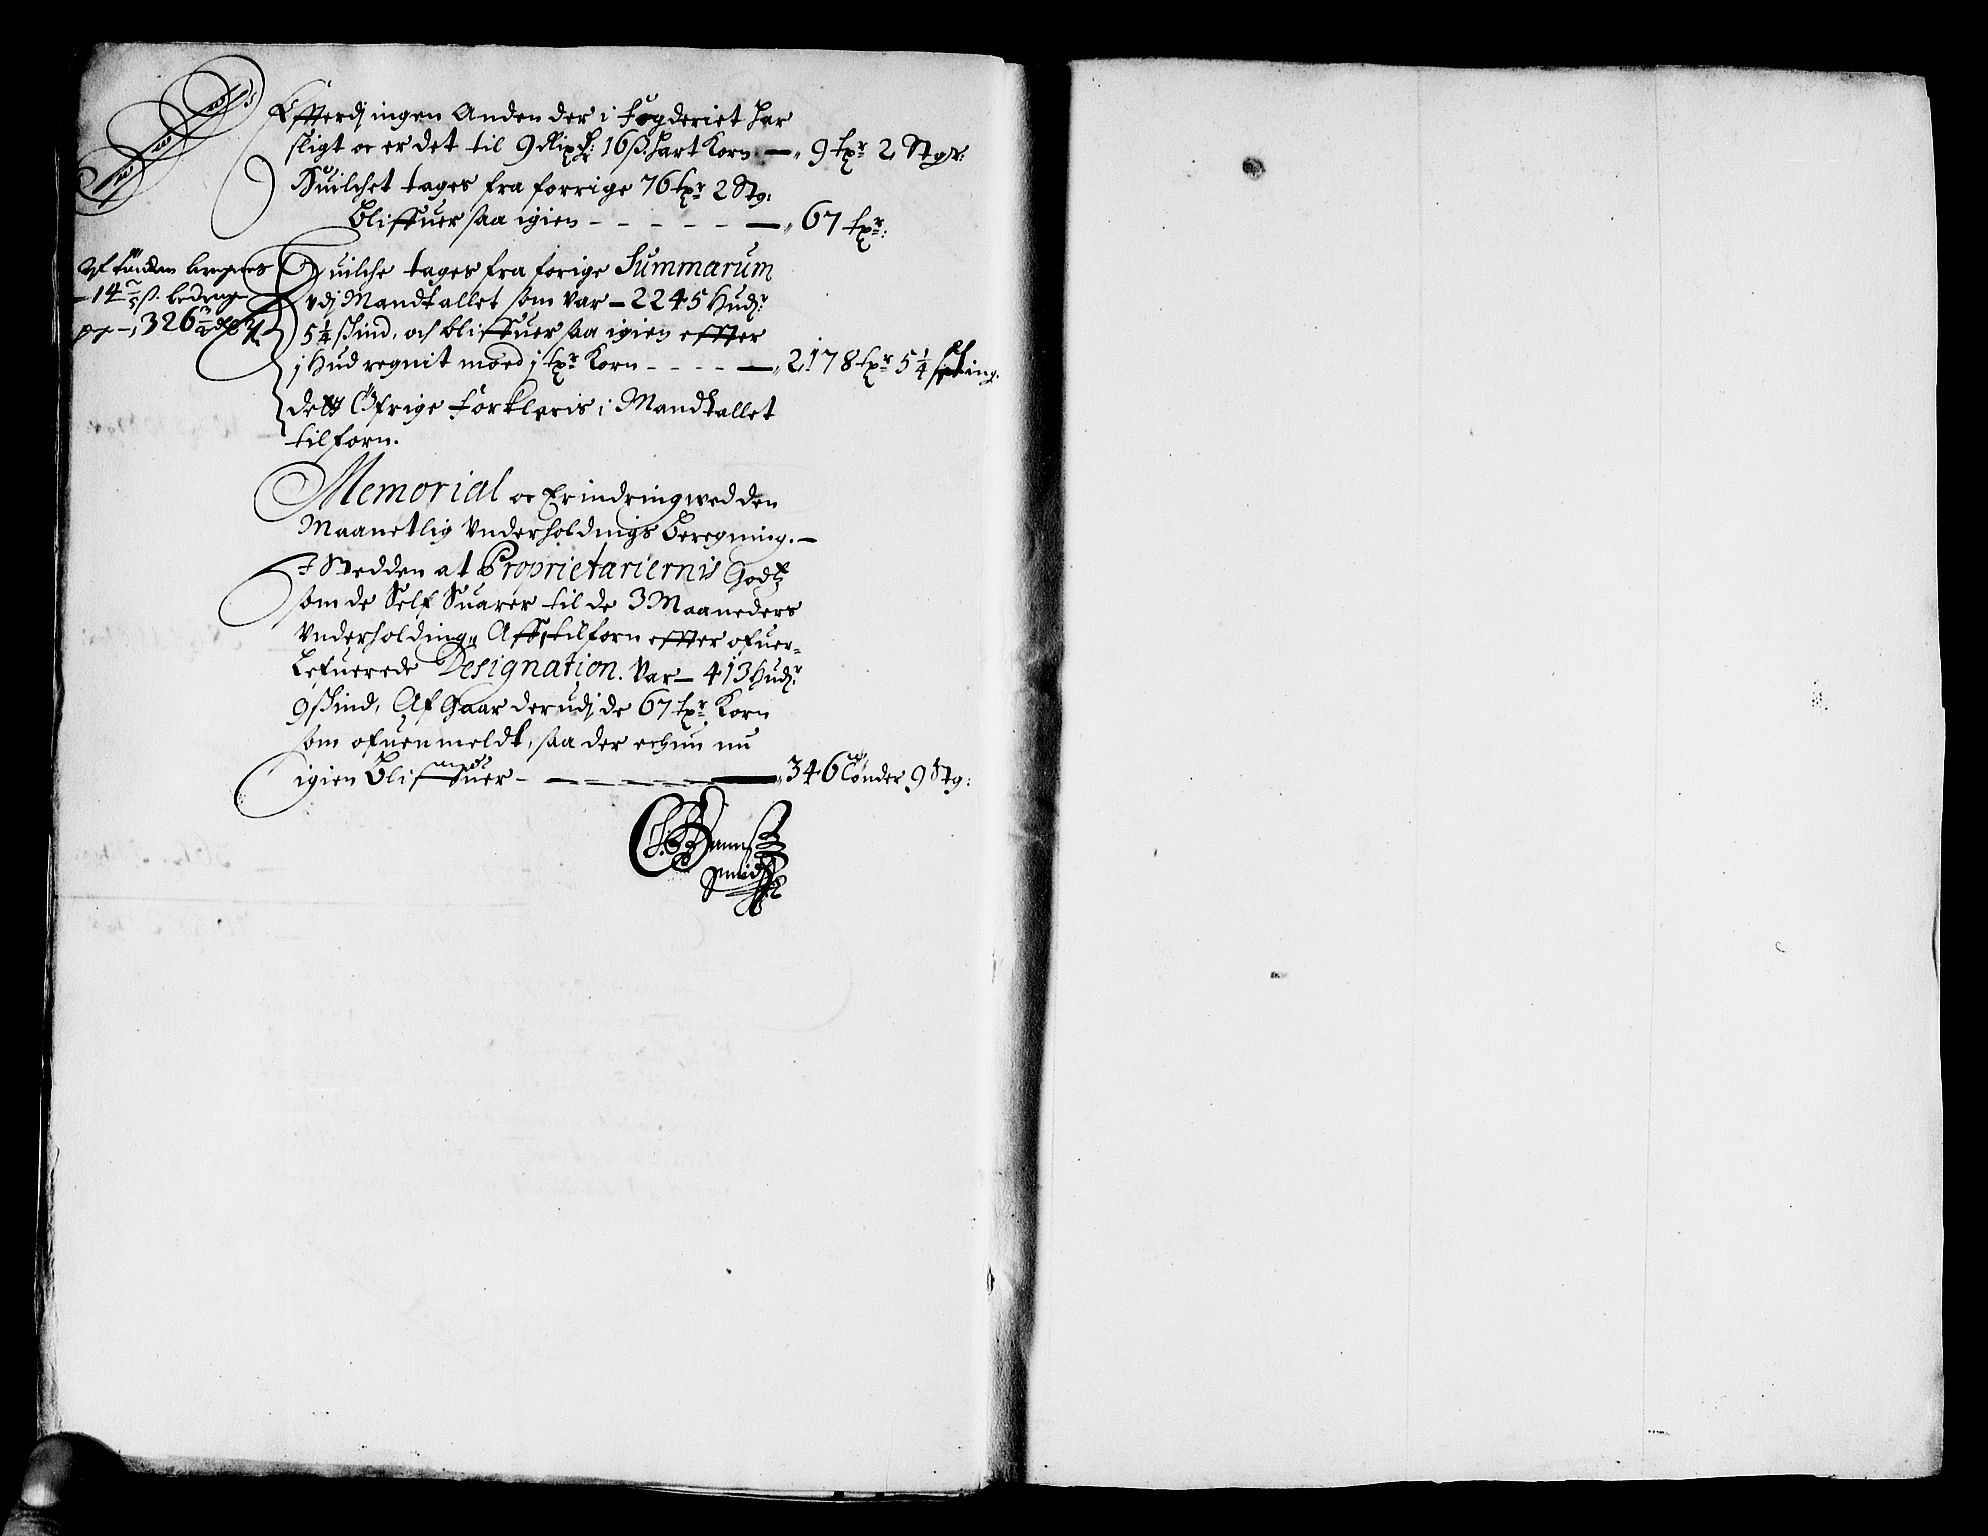 Effterdj ingen Anden der i fogderiet har
sligt oc er det til 9 Rixdr: 16 ß hart Korn — 9 txr 2 Stgr:
Huilchet tages fra forrige 76 txr 2 Stg:
bliffuer saa igien - - - - - — 67 txr:
Af tønden beregnes
- 14 ß. bedrage
- 326
Huilche tages fra forige Summarum
vdj Mandtallet som var - 2245 Hudr
5 1/4 skind, och bliffuer saa igien effter
j Hud regnit moed j txr Korn - - - - — 2178 txr 5 1/4
dets Øfrige forklaris i Mandtallet
tilforn.
Memorial oc Erindring wed den
Maanetlig Vnderholdnigs Beregning. —
I Stedden at Proprietariernis Godtz
som de Self Suarer til de 3 Maaneders
Vnderholding, tilforn effter ofuer-
lefuerede Designation. Var - 413 Hudr
9 skind, Af Gaar der udj de 67 txr Korn
som ofuenmeldt, saa der echun nu
igien Bliffuer - — — — — 346 Tønder 9 Stg: